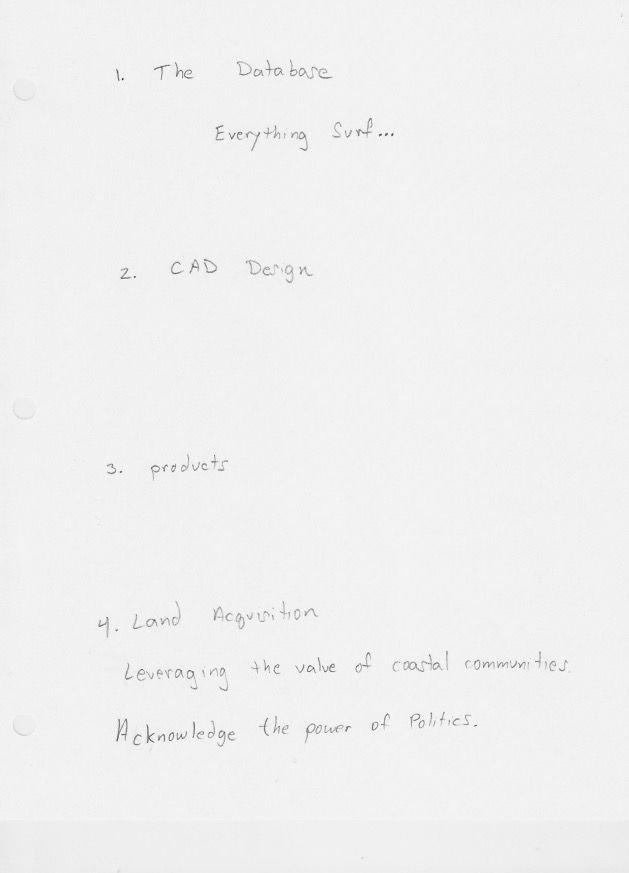 1. The Database
Everything Surf...
2. CAD Design
3. products
4. Land Acquisition
Leveraging the value of coastal communities.
Acknowledge the power of Politics.